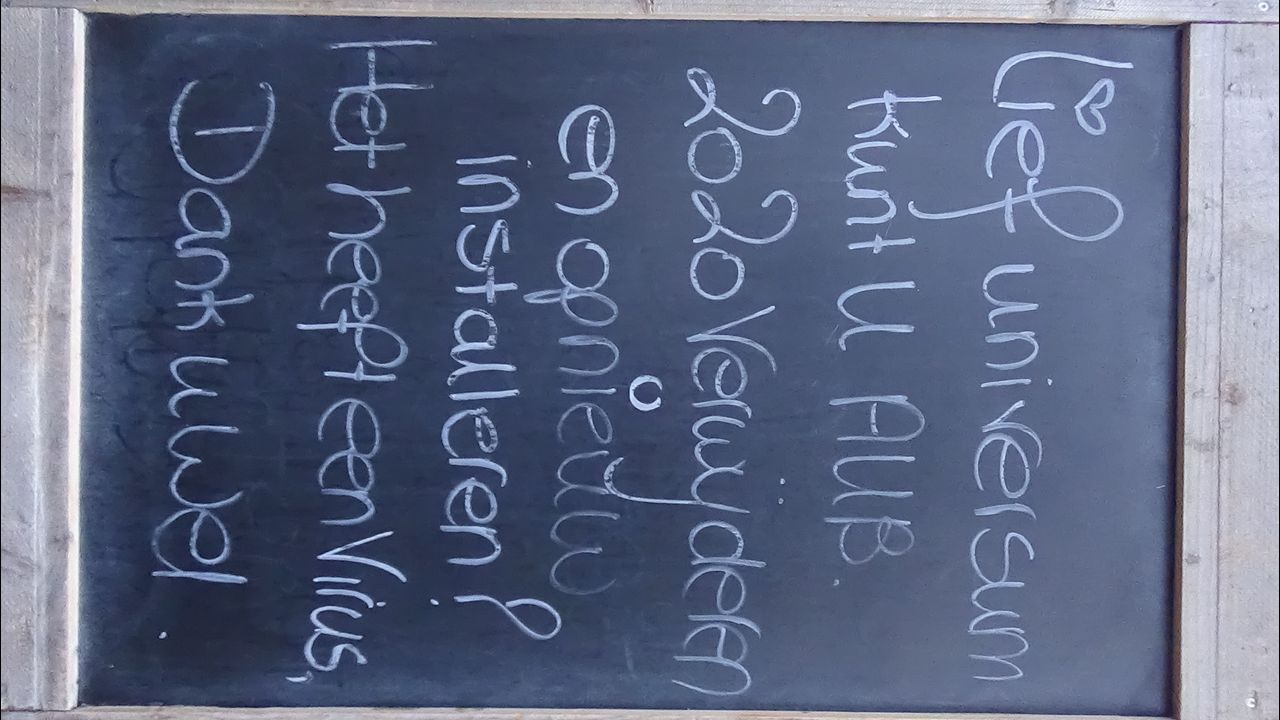 Lief universum
kunt u AUB.
2020 Verwijderen
en opnieuw
installeren!
Het heeft een Virus,
Dank u wel.